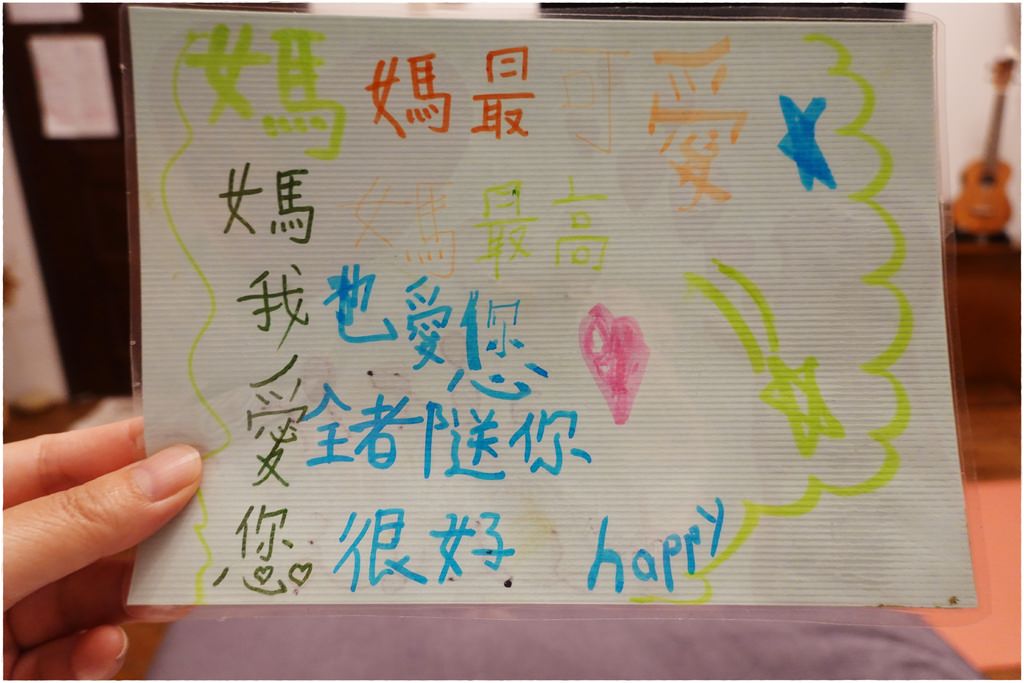 媽媽最可愛
媽媽最高
我也愛您
愛全者隧你
您很好 happy